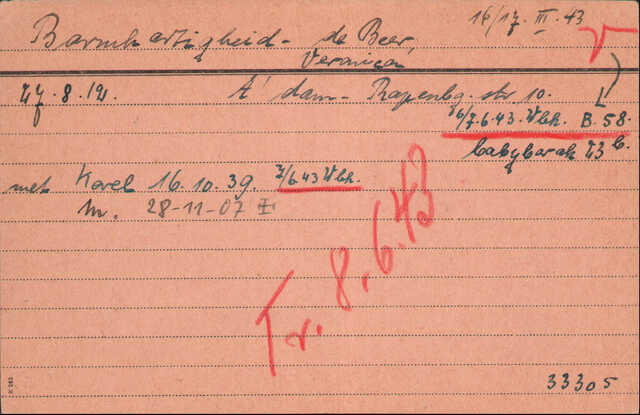 16/17. III. 43
Barmhartigheid - de Beer,
Veronica
27.8.12. A'dam - Rapenbg. str 10.
6/7.6.43. Vbh. B. 58.
babybarak 23 b.
met Karel 16.10.39. 7/6 43 Vbh.
M. 28-11-07 II
Tr. 8.6.43
33305